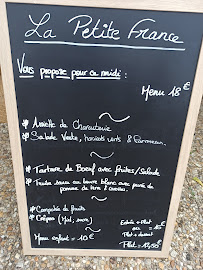 La Petite France
Vous propose pour ce midi :
Menu 18 €
Assiette de Charcuterie
Salade Verte, haricots verts & Parmesan
Tartare de Boeuf avec frites/Salade
Truite sauce au beurre blanc avec purée de
pomme de terre &
Compotée de fruits
Crêpes (Miel, sucre)
Menu enfant = 10 €
Entrée + Plat
ou
Plat + dessert
Plat =